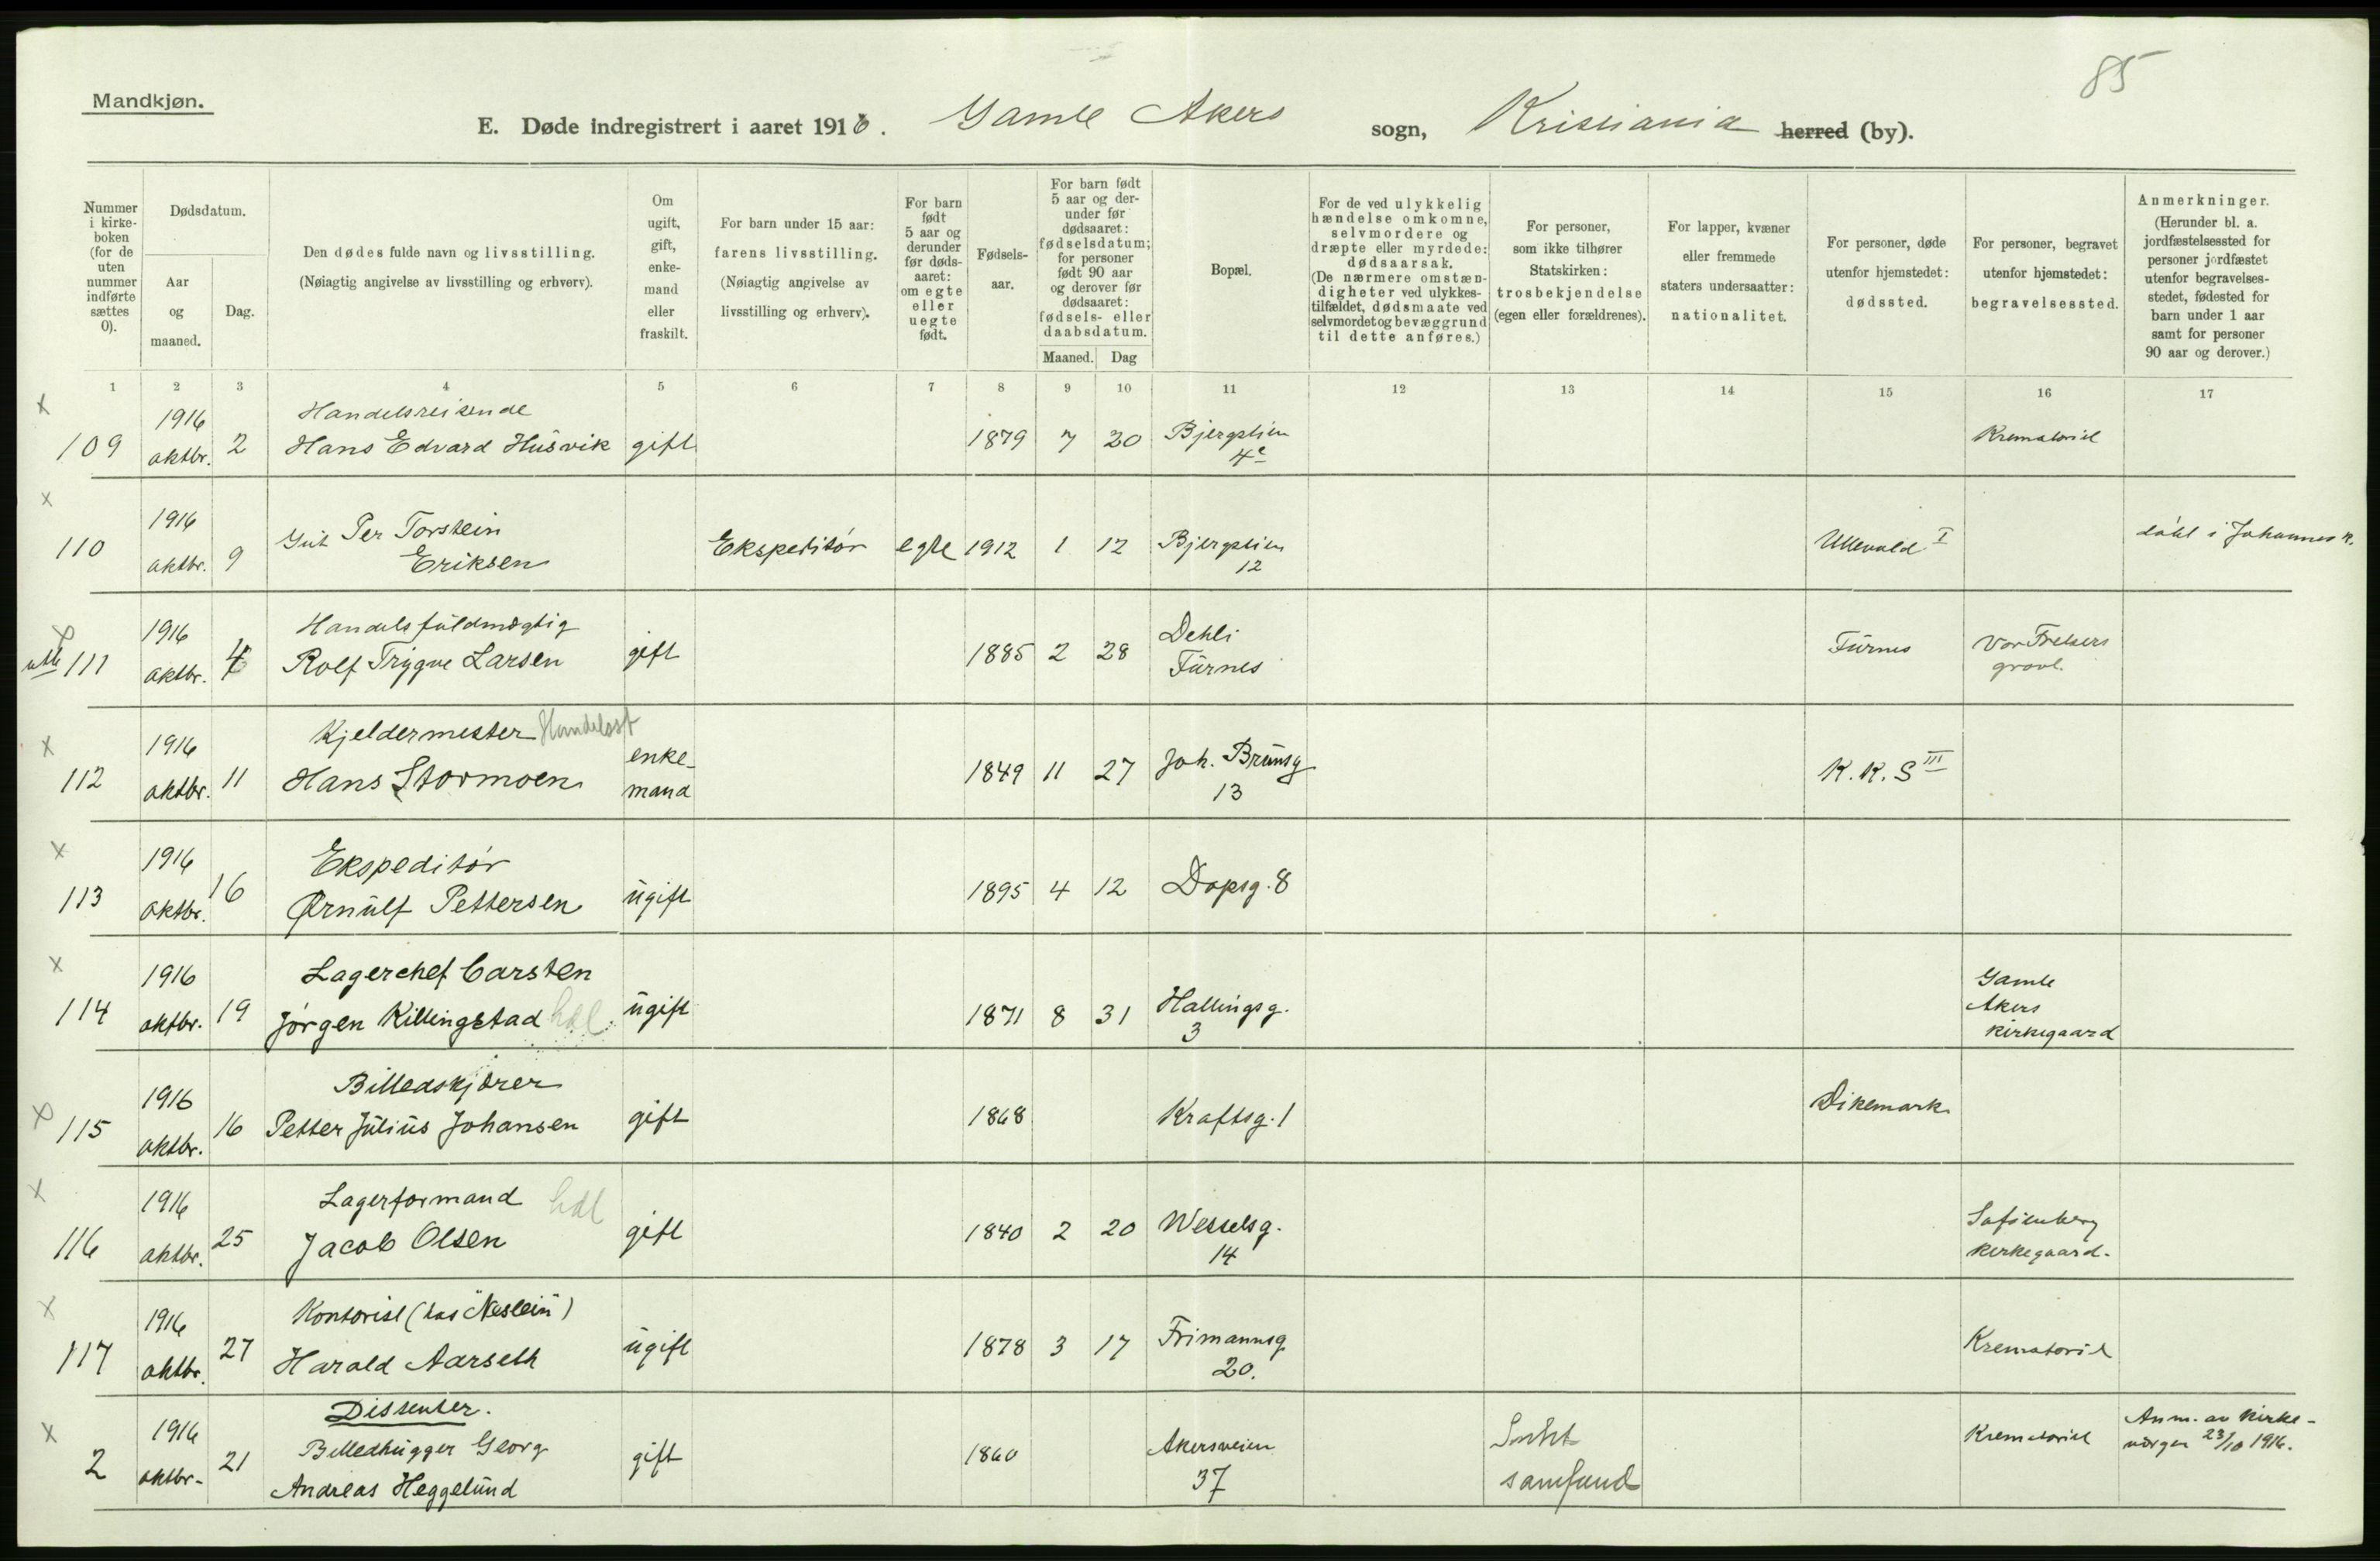 85
Mandkjøn.
E. Døde indregistrert i aaret 1916. Gamle Akers sogn, Kristiania herred (by).
Nummer i kirke-boken (for de uten nummer indførte sættes 0).
Dødsdatum.
Aar og maaned.
Dag.
Den dødes fulde navn og livsstilling.
(Nøiagtig angivelse av livsstilling og erhverv).
Om ugift, gift, enke-mand eller fraskilt.
For barn under 15 aar: farens livsstilling.
(Nøiagtig angivelse av livsstilling og erhverv).
For barn født 5 aar og derunder før døds-aaret: om egte eller uegte født.
Fødsels-aar.
For barn født 5 aar og der-under før dødsaaret: fødselsdatum; for personer født 90 aar og derover før dødsaaret: fødsels- eller daabsdatum.
Maaned. Dag
Bopæl.
For de ved ulykkelig hændelse omkomne, selvmordere og dræpte eller myrdede: dødsaarsak.
(De nærmere omstæn-digheter ved ulykkes-tilfældet, dødsmaate ved selvmordet og bevæggrund til dette anføres.)
For personer, som ikke tilhører Statskirken: trosbekjendelse (egen eller forældrenes).
For lapper, kvæner eller fremmede staters undersaatter: nationalitet.
For personer, døde utenfor hjemstedet: dødssted.
For personer, begravet utenfor hjemstedet: begravelsessted.
Anmerkninger.
(Herunder bl. a. jordfæstelsessted for personer jordfæstet utenfor begravelses-stedet, fødested for barn under 1 aar samt for personer 90 aar og derover.)
1 2 3 4 5 6 7 8 9 10 11 12 13 14 15 16 17
x 1916 Handelsreisende
109 oktbr. 2 Hans Edvard Husvik gift 1879 7 20 Bjergstien 4c Krematoriet
x 1916
110 oktbr. 9 Gut Per Torstein Eriksen Ekspeditør egte 1912 1 12 Bjergstien 12 Ullevold I døbt i Johannes k.
x 1916 Handelsfuldmægtig
utb 111 oktbr. 4 Rolf Trygve Larsen gift 1885 2 28 Dehli Furnes Furnes Vor Frelsers gravl.
x 1916 Kjeldermester Handelsst
112 oktbr. 11 Hans Stormoen enke-mand 1849 11 27 Joh. Brunsg 13 K. K. S III
x 1916 Ekspeditør
113 oktbr. 16 Ørnulf Pettersen ugift 1895 4 12 Dopsg. 8
x 1916 Lagerchef Carsten
114 oktbr. 19 Jørgen Killingstad hdl. ugift 1871 8 31 Hallingsg. 3 Gamle Akers kirkegaard
x 1916 Billedskjærer
115 oktbr. 16 Petter Julius Johansen gift 1868 Kraftsg. 1 Dikemark
x 1916 Lagerformand hdl
116 oktbr. 25 Jacob Olsen gift 1840 2 20 Wesselsg. 14 Sofienberg kirkegaard.
x 1916 Kontorist (hos "Neslein")
117 oktbr. 27 Harald Aarseth ugift 1878 3 17 Frimannsg. 20. Krematoriet
Dissenter.
x 1916 Billedhugger Georg
2 oktbr- 21 Andreas Heggelund gift 1860 Akersveien 37 samfund Krematoriet Anm. av kirke-vergen 23/10 1916.